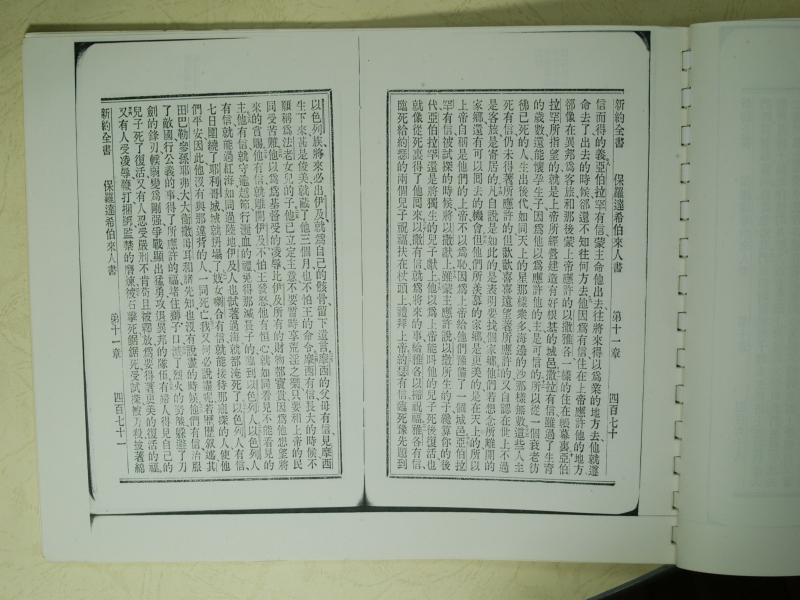 新約全書 保羅達希伯來人書 第十一章 四百七十
信而得的義亞伯拉罕有信蒙主命他出去往將來得以爲業的地方去他就遵
命去了出去的時候卻還不知往何方去他因爲有信住在上帝應許他的地方
卻像在異邦爲客旅和那後蒙上帝應許的以撒雅各一樣的住在帳幕裏亞伯
拉罕所指望的就是上帝所經營建造有好根基的城邑撒拉有信雖過了生育
的歲數還能懷孕生子因爲他以爲應許他的主是可信的所以從一個衰老彷
彿已死的人生出後代如同天上的星那樣衆多海邊的沙那樣無數這些人至
死有信仍未得著所應許的但歡歡喜喜遠望著所應許的又自認在世上不過
是客旅是寄居的凡自說是如此的是表明要找個家鄉他們若想念所離開的
家鄉還有可以回去的機會但他們所羨慕的家鄉是更美的是在天上的所以
上帝自稱是他們的上帝不以爲恥因爲上帝給他們預備了一個城邑亞伯拉
罕有信被試探的時候將以撒獻上雖蒙主應許說以撒所生的子纔算你的後
代亞伯拉罕還是將獨生的兒子獻上他以爲上帝能叫他的兒子死後復活也
就像從死裏得了他回來以撒有信就爲將來的事給雅各以掃祝福雅各有信
臨死給約瑟的兩個兒子祝福扶在杖頭上禮拜上帝約瑟有信臨死豫先題到
以色列族將來必出伊及就爲自己的骸骨留下遺言摩西的父母有信見摩西
生下來甚是俊美就藏了他三個月也不怕王的命令摩西有信長大的時候不
願稱爲法老女兒的子他已立定主意不要暫時享荒淫之樂只要和上帝的民
同受苦難他以爲爲基督受的凌辱比伊及所有的財物都寶貴因爲他想望將
來的賞賜他有信就離開伊及不怕王發怒他有恆心就如同看見不能看見的
主他有信就守逾越節行灑血的禮免得那滅長子的臨到以色列人以色列人
有信就能過紅海如同過陸地伊及人也試著過海就都淹死了以色列人有信
七日圍繞了耶利哥城城就坍塌了妓女喇合有信就能接待那窺探的人使他
們平安因此他沒有與那違背的人一同死亡我又何必說盡呢若歷歷敘述其
田巴勒參孫耶弗大大衛撒母耳和諸先知也沒有說盡的時候他們有信治服
了敵國行公義的事得了所應許的福堵住獅子口滅了烈火的勢脫離了刀
劍的鋒刃輭弱變爲剛强爭戰顯出猛勇攻退異邦的隊伍有婦人得見自己的
兒子死了復活又有人忍受嚴刑不肯苟且被釋放爲要得著更美的復活的福
又有人受凌辱鞭打捆綁監禁的磨煉被石擊死鋸鋸死受試探被刀殺披著綿
新約全書 保羅達希伯來人書 第十一章 四百七十一